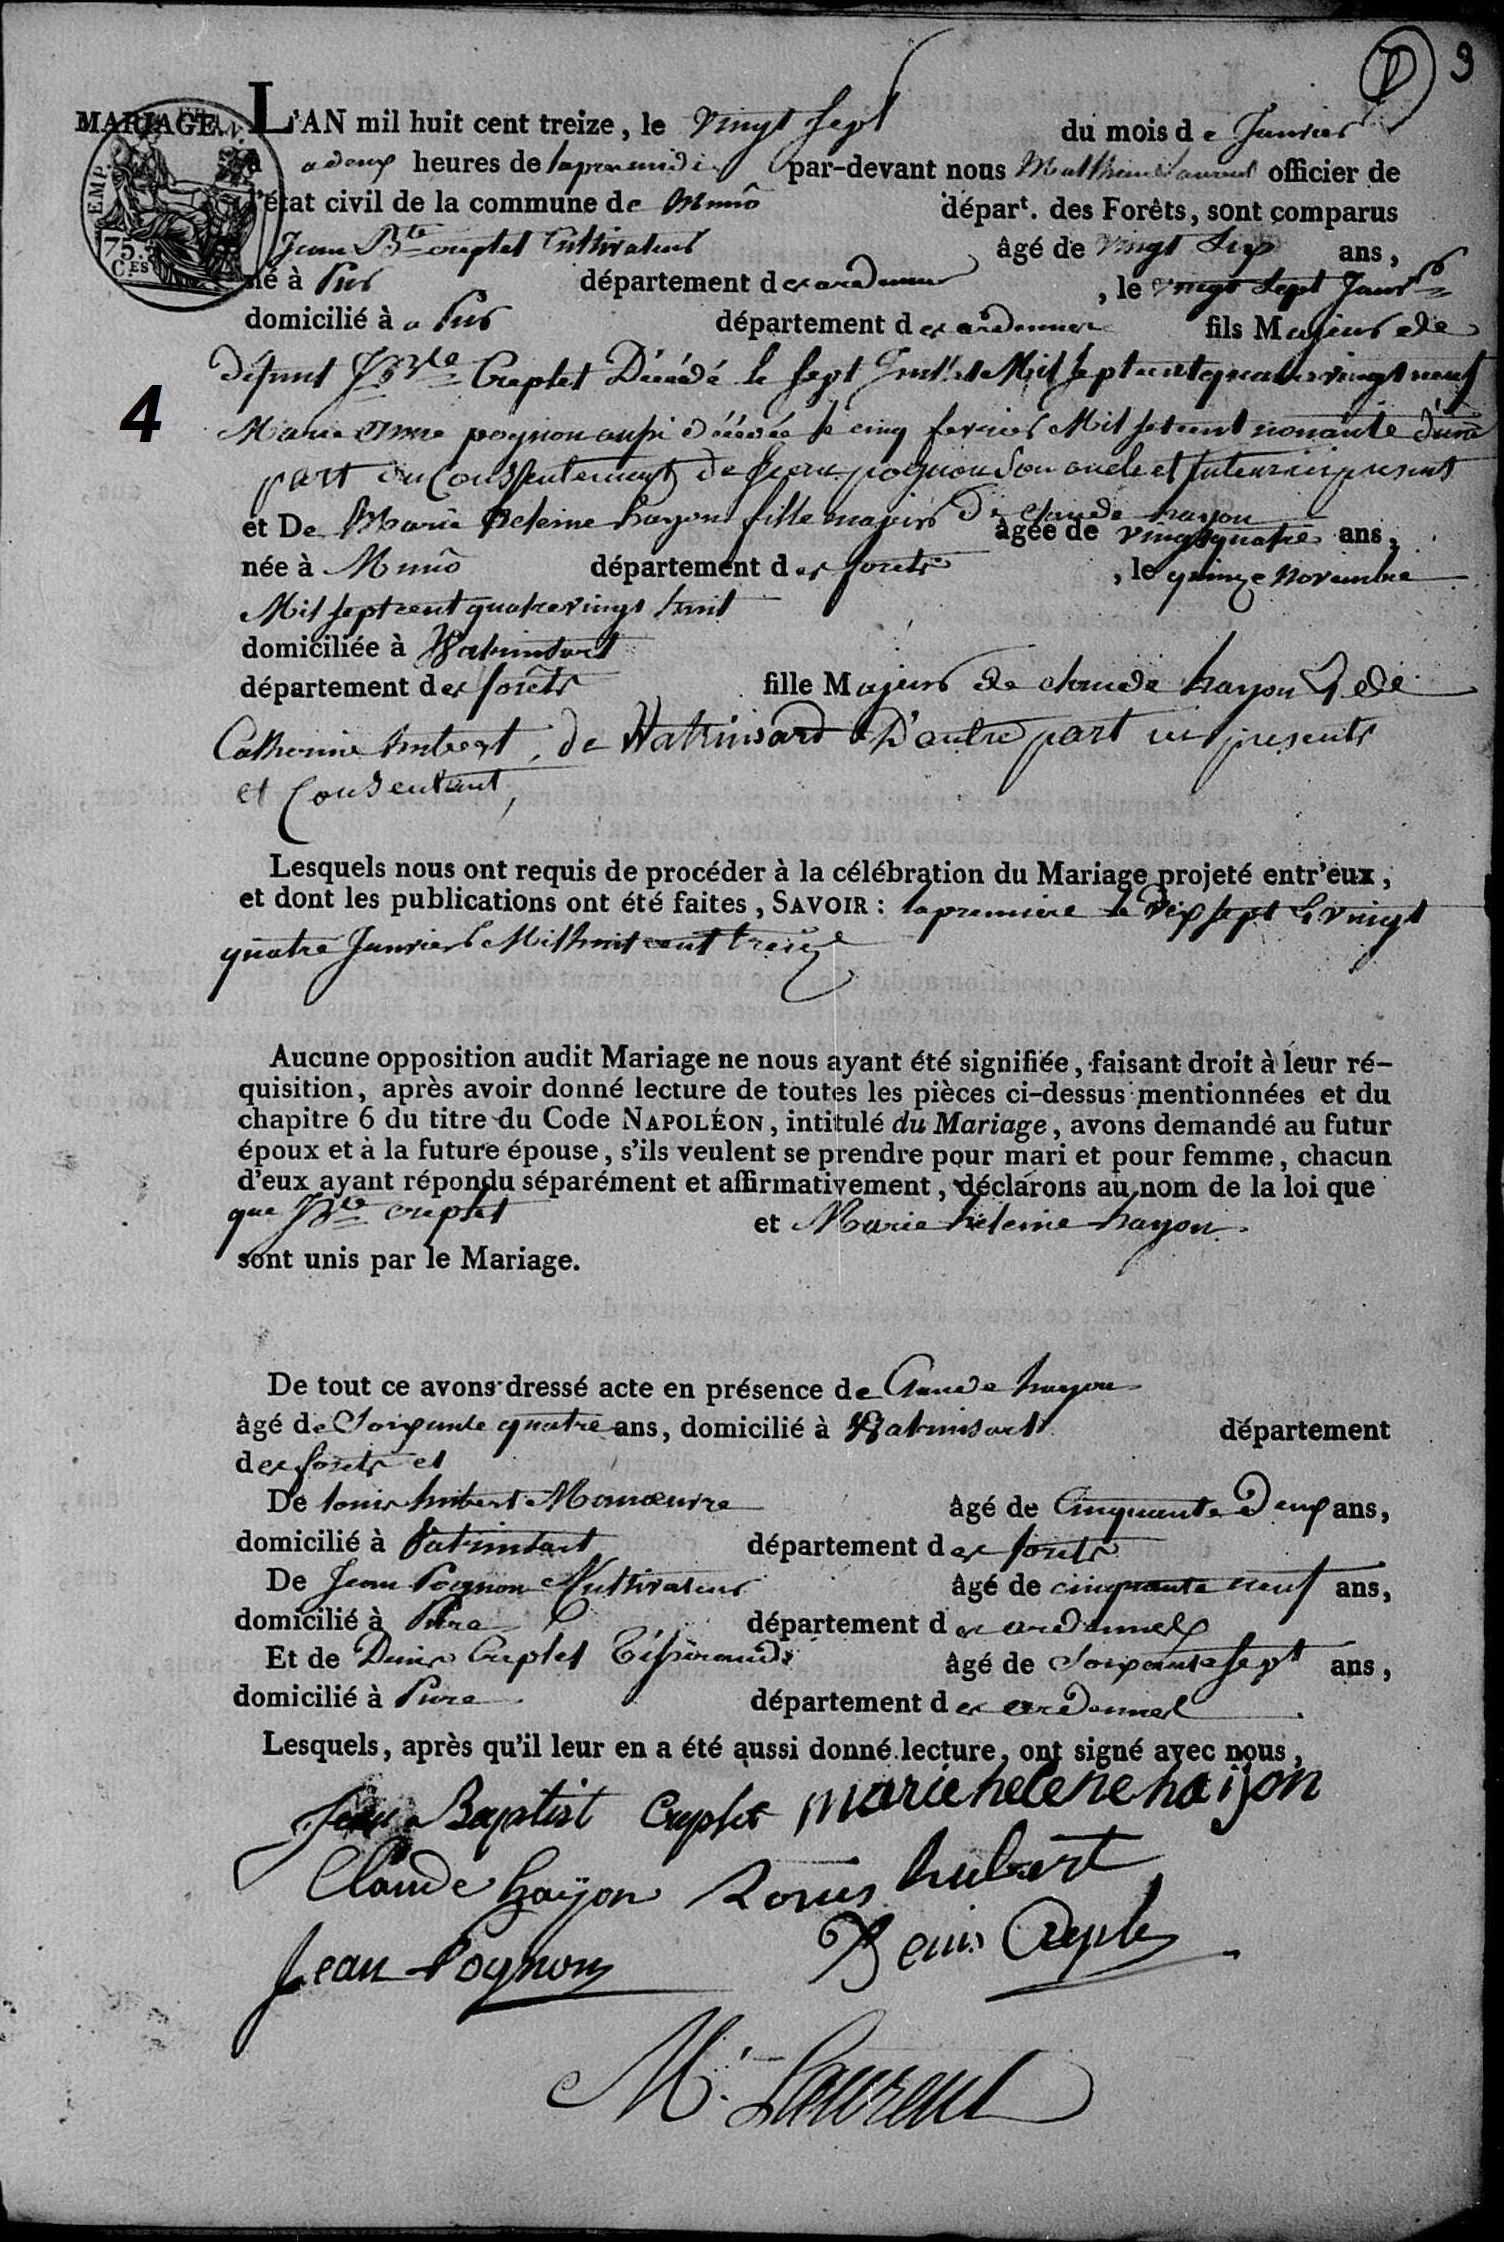 D 9
MARIAGE. L'AN mil huit cent treize, le vingt sept du mois de Janvier
à a deux heures de lapremidi par-devant nous Matthieu Laurent officier de
l'état civil de la commune de Munô départ. des Forêts, sont comparus
Jean Bte creplet Cultivateur âgé de vingt Sep ans,
né à Pur département des ardennes, le vingt sept Janvr
domicilié à a Pur département des ardennes fils Majeur de
défunt J Bte Creplet Décédé le sept Juillet Mil septcentquatrevingt neuf
4
Marie Anne pognon aussi décédée le cinq fevrier Mil setcent nonante d'une
part du Consentement de Jean pognon Son oncle et tuteur ici present
et De Marie heleine hayon fille majeur De claude hayon âgée de vingtquatre ans,
née à Munô département des forêts, le quinze Novembre
Mil septcent quatrevingt huit
domiciliée à Watrinsart
département des forêts fille Majeur de claude hayon & de
Catherine hubert, de Watrinsard D'autre part ici presents
et Consentant,
Lesquels nous ont requis de procéder à la célébration du Mariage projeté entr'eux,
et dont les publications ont été faites, SAVOIR : la premiere le Dix sept & vingt
quatre Janvier Mil huit cent treize
Aucune opposition audit Mariage ne nous ayant été signifiée, faisant droit à leur ré-
quisition, après avoir donné lecture de toutes les pièces ci-dessus mentionnées et du
chapitre 6 du titre du Code NAPOLÉON, intitulé du Mariage, avons demandé au futur
époux et à la future épouse, s'ils veulent se prendre pour mari et pour femme, chacun
d'eux ayant répondu séparément et affirmativement, déclarons au nom de la loi que
que J Bte creplet et Marie heleine hayon.
sont unis par le Mariage.
De tout ce avons dressé acte en présence de Claude hayon
âgé de Soixante quatre ans, domicilié à Watrinsart département
des forêts et
De louis hubert Manoeuvre âgé de Cinquante Deux ans,
domicilié à Vatrinsart département des forêts
De Jean Pognon Cultivateur âgé de cinquante neuf ans,
domicilié à Pure département des ardennes
Et de Denis Creplet Tisserand âgé de Soixante sept ans,
domicilié à Pure département des ardennes.
Lesquels, après qu'il leur en a été aussi donné lecture, ont signé avec nous,
Jean Baptist Creplet marie helene haijon
Claude hayon Louis hubert
Jean Pognon Denis Creple
M. Laurent
EMP.
75.
C.ES